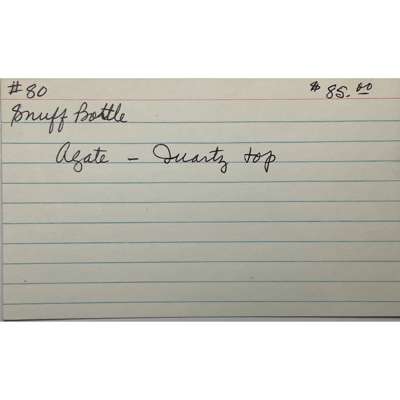 #80 $85.00
Snuff Bottle
Agate - Quartz top